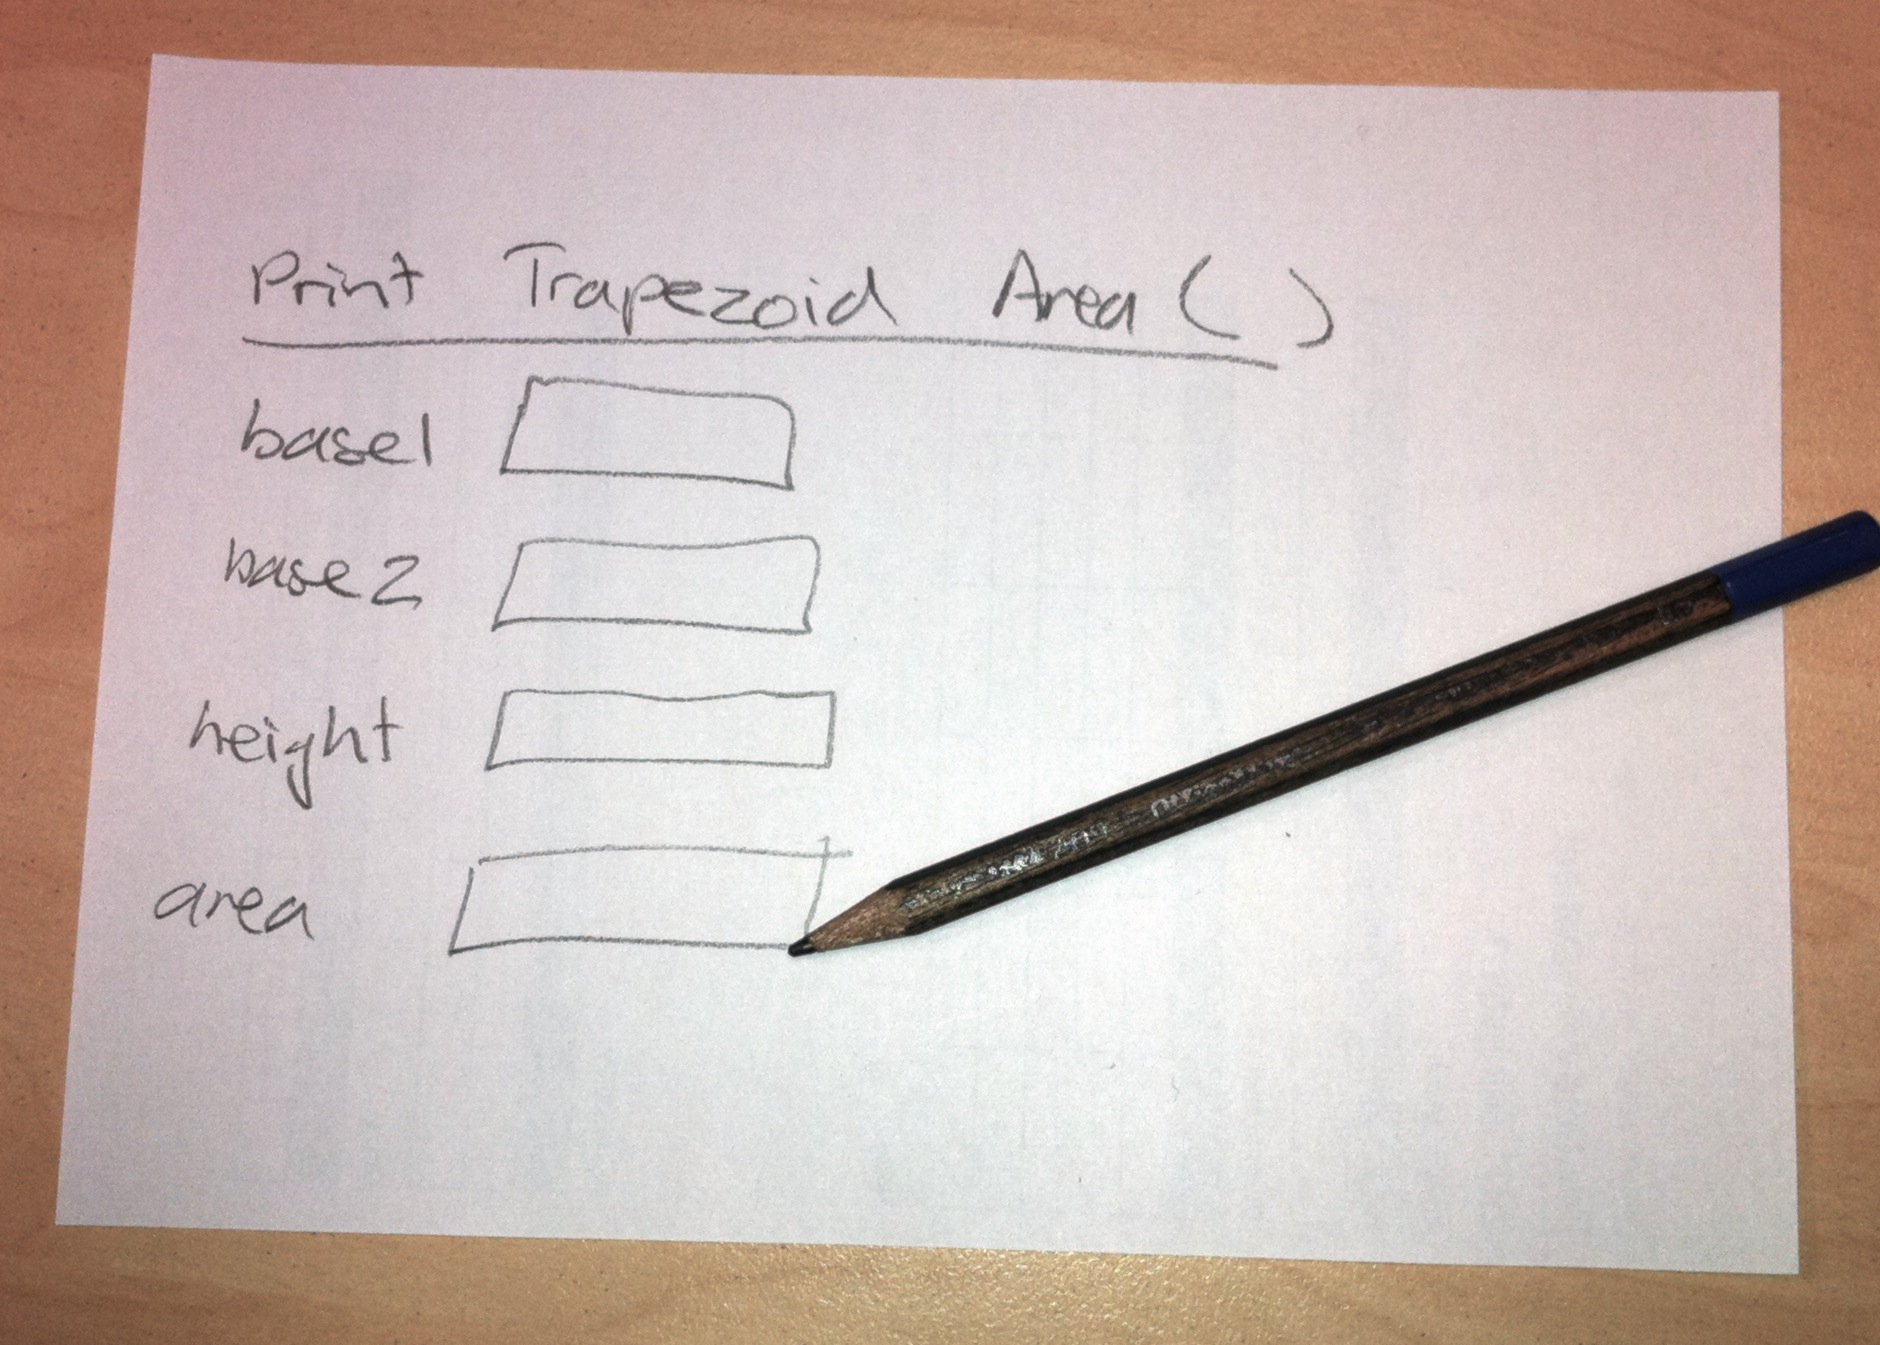 Print Trapezoid Area ( )
base1
base2
height
area